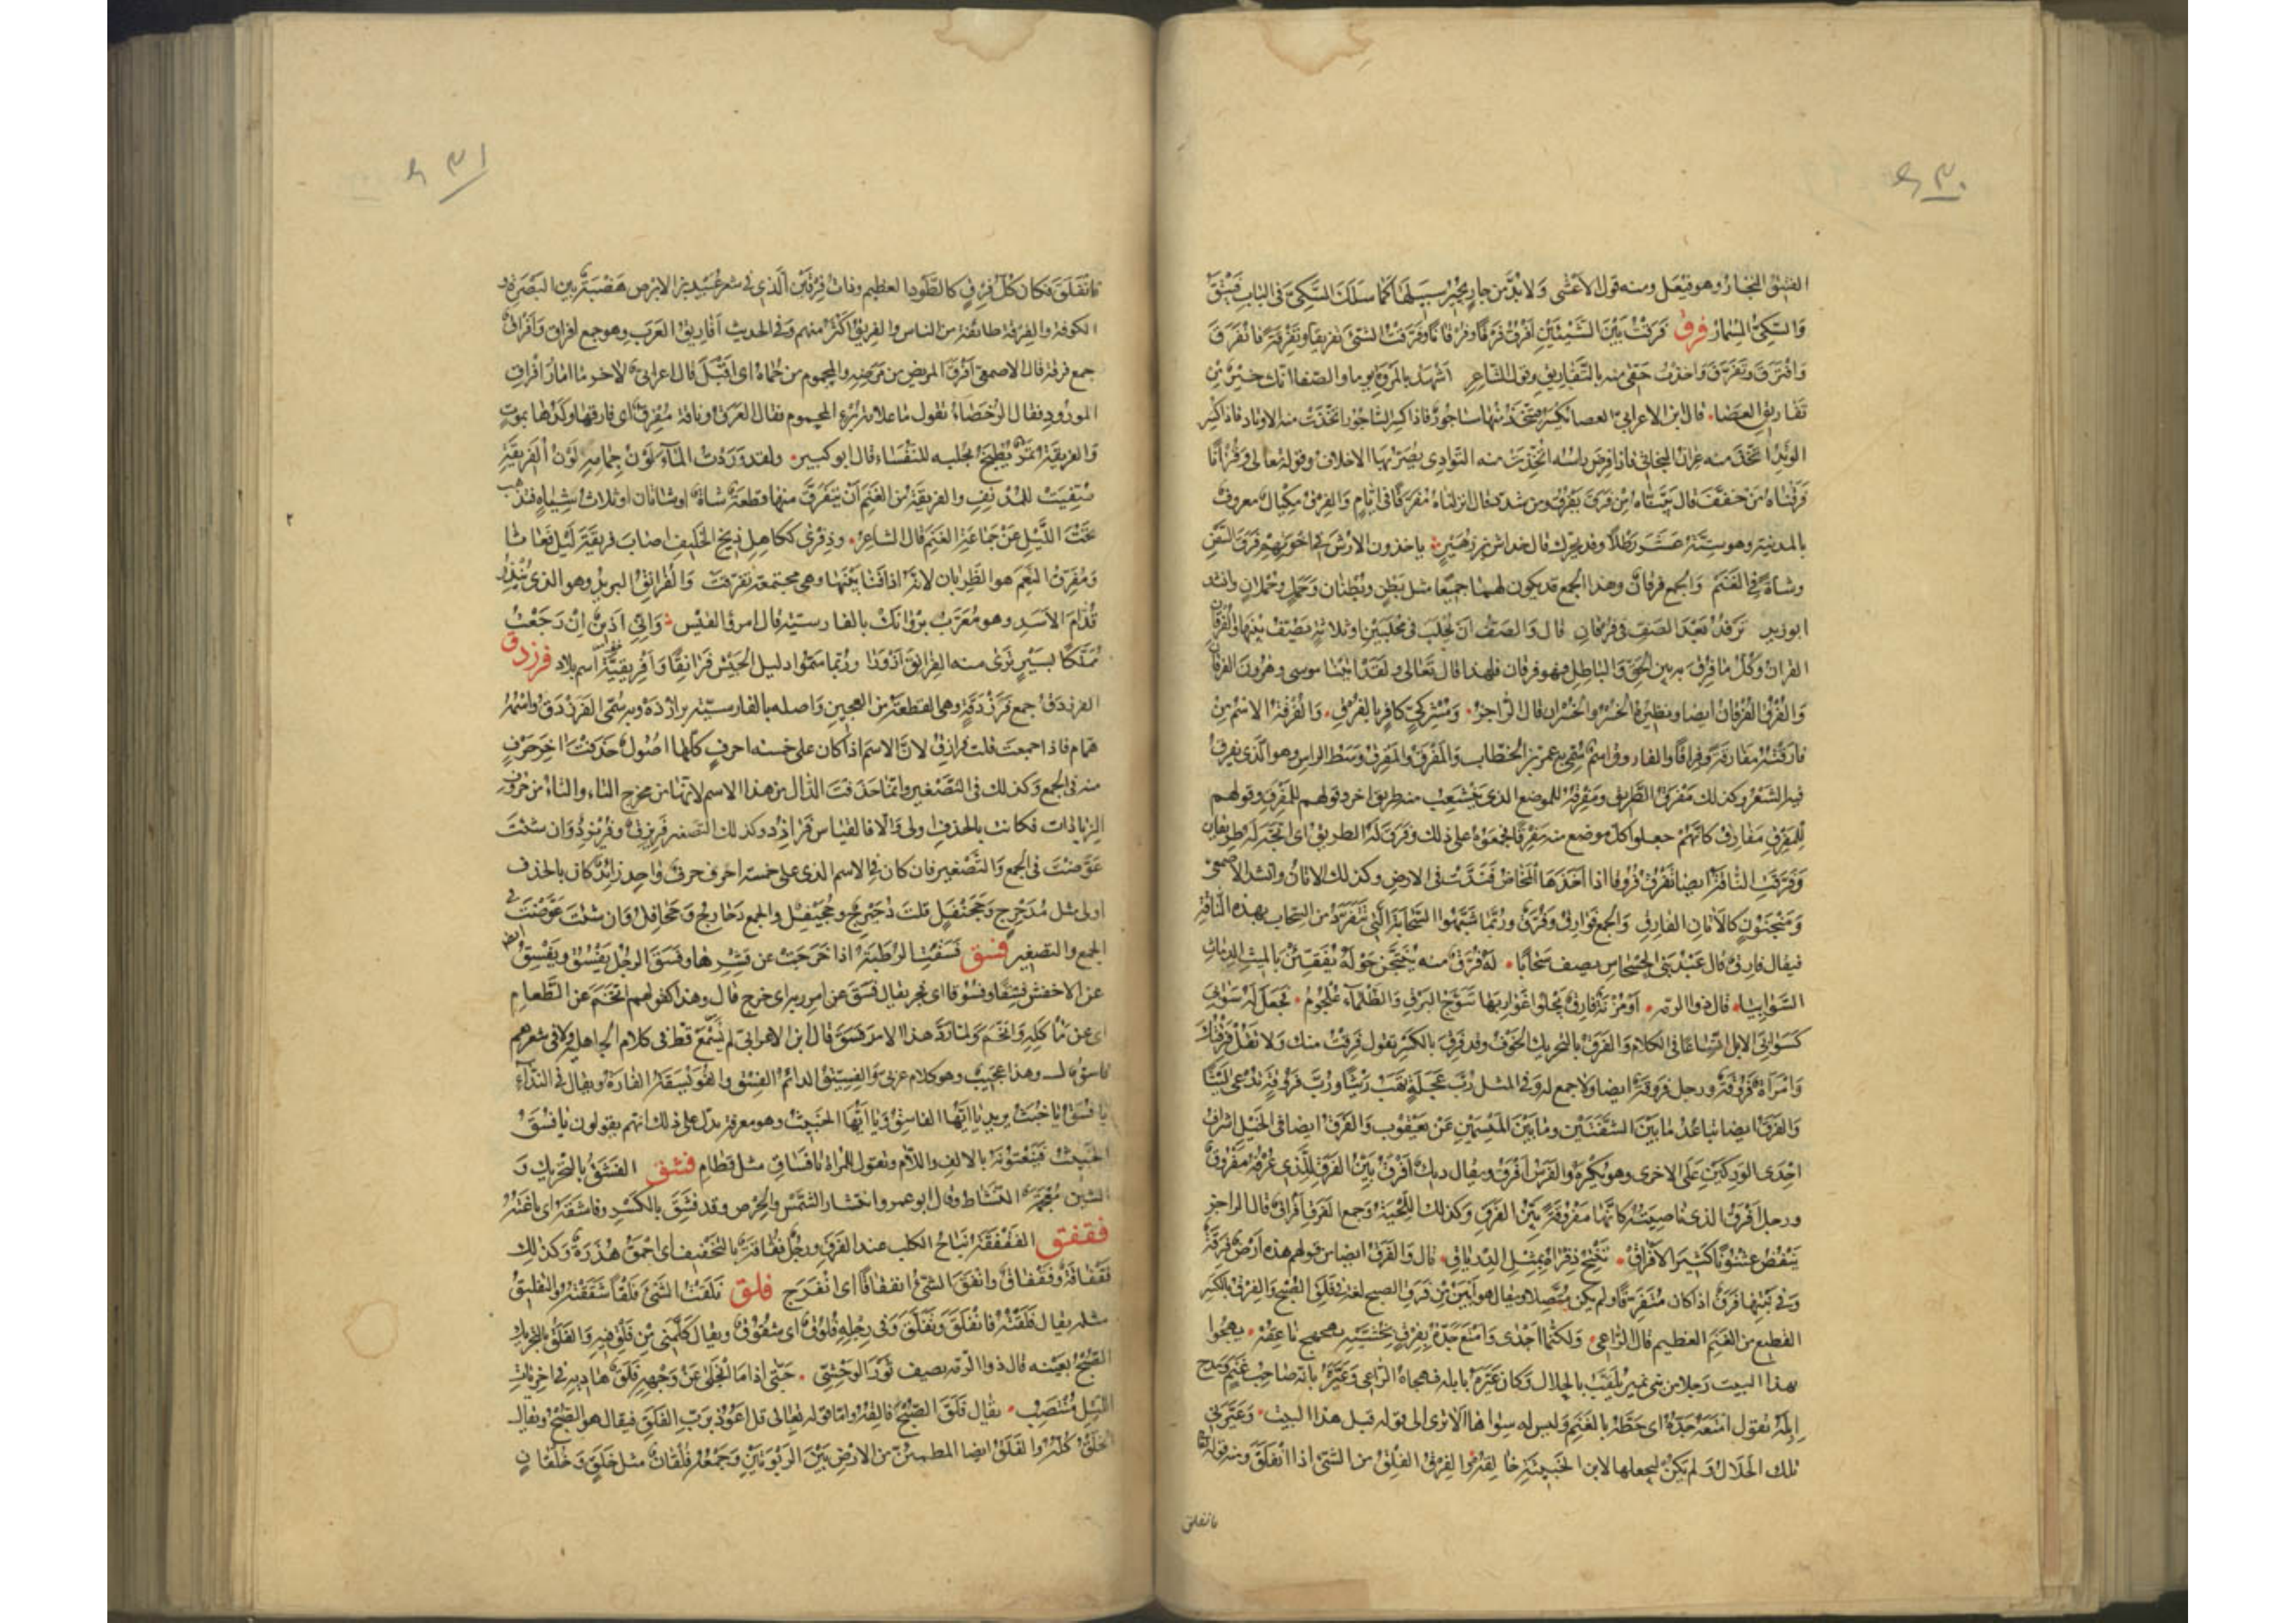 الفيتق النجار وهو فيعل ومنه قول الاعشى ولا بد من جار يجير سبيلها كما سلك السكى فى الباب فيتق
والسكى المسمار فرق فرقت بين الشيئين افرق فرقا وفرقانا وفرقت الشئ تفريقا وتفرقة فانفرق
وافترق وتفرق واخذت حقى منه بالتفاريق وقول الشاعر اشهد بالمروة يوما والصفا انك خير من
تفاريق العصا قال ابن الاعرابى العصا تكسر فيتخذ منها ساجور فاذا كسر الساجور اتخذت منه الاوتاد فاذا كسر
الوتد اتخذ منه عران للبخاتى فاذا فرض راسه اتخذت منه التوادى يصر بها الاخلاف وقوله تعالى وقرانا
فرقناه من خفف قال بيناه من فرق يفرق ومن شدد قال انزلناه مفرقا فى ايام والفرق مكيال معروف
بالمدينة وهو ستة عشر رطلا وقد يحرك قال خداش بن زهير ياخذون الارش فى اخوتهم فرق السمن
وشاة فى الغنم والجمع فرقان وهذا الجمع قد يكون لهما جميعا مثل بطن وبطنان وحمل وحملان وانشد
ابو زيد ترفد بعد الصف فى فرقان قال والصف ان تحلب فى محلبين او ثلاثة تصف بينها والفرقان
القران وكل ما فرق به بين الحق والباطل فهو فرقان فلهذا قال تعالى ولقد اتينا موسى وهرون الفرقان
والفرق الفرقان ايضا ونظيره الخسر والخسران قال الراجز ومشركى كافر بالفرق والفرقة الاسم من
فارقته مفارقة وفراقا والفاروق اسم سمى به عمر بن الخطاب والمفرق والمفرق وسط الراس وهو الذى يفرق
فيه الشعر وكذلك مفرق الطريق ومفرقه للموضع الذى يتشعب منه طريق اخر وقولهم للمفرق وقولهم
للمفرق مفارق كانهم جعلوا كل موضع منه مفرقا فجمعوه على ذلك وفرق له الطريق اى اتجه له طريقان
وفرقت الناقة ايضا تفرق فروقا اذا اخذها المخاض فندت فى الارض وكذلك الاتان وانشد الاصمعى
ومنجنون كالاتان الفارق والجمع فوارق وفرق وربما شبهوا السحابة التى تنفرد من السحاب بهذه الناقة
فيقال فارق قال عبد بنى الحسحاس يصف سحابا له فرق منه ينتجن حوله يفقئن بالميث الدماث
السوابيا قال ذو الرمة او مزنة فارق يجلو غواربها تبوج البرق والظلماء علجوم فجعل له سوابى
كسوابى الابل اتساعا فى الكلام والفرق بالتحريك الخوف وقد فرق بالكسر تقول فرقت منك ولا تقل فرقتك
وامراة فروقة ورجل فروقة ايضا ولا جمع له وفى المثل رب عجلة تهب ريثا ورب فروقة يدعى ليثا
والفرق ايضا تباعد ما بين الثنيتين وما بين المنسمين عن يعقوب والفرق ايضا فى الخيل اشراف
احدى الوركين على الاخرى وهو يكره والفرس افرق ويقال ديك افرق بين الفرق للذى عرفه مفروق
ورجل افرق الذى ناصيته كانها مفروقة بين الفرق وكذلك اللحية وجمع الفرق افراق قال الراجز
ينفض عثنونا كثير الافراق تنتح ذفراه بمثل الدرياق قال والفرق ايضا من قولهم هذه ارض فرقة
وفى نبتها فرق اذا كان متفرقا ولم يكن متصلا ويقال هو ابين من فرق الصبح لغة فى فلق الصبح والفرق بالكسر
القطيع من الغنم العظيم قال الراعى ولكنما اجدى وامتع جده بفرق يخشيه بهجهج ناعقه يهجوا
بهذا البيت رجلا من بنى نمير يلقب بالحلال وكان عيره بابله فهجاه الراعى وعيره بانه صاحب غنم ومدح
ابله تقول امتعه جده اى حظه بالغنم وليس له سواها الا ترى الى قوله قبل هذا البيت وعيرنى
تلك الحلال ولم يكن ليجعلها لابن الخبيثة خالقه والفرق الفلق من الشئ اذا انفلق ومنه قوله تعالى
فانفلق
فانفلق فكان كل فرق كالطود العظيم وذات فرقين الذى فى شعر عبيد بن الابرص هضبة بين البصرة و
الكوفة والفرقة طائفة من الناس والفريق اكثر منهم وفى الحديث افاريق العرب وهو جمع افراق وافراق
جمع فرقة قال الاصمعى افرق المريض من مرضه والمحموم من حماه اى اقبل قال اعرابى لاخر ما امار افراق
المورود فقال الرحضاء تقول ما علامة برء المحموم فقال العرق وناقة مفرق اى فارقها ولدها بموت
والفريقة تمر يطبخ بحلبه للنفساء قال ابو كبير ولقد وردت الماء لون جمامه لون الفريقة
صفيت للمدنف والفريقة من الغنم ان يتفرق منها قطعة شاة او شاتان او ثلاث شياه فتذهب
تحت الليل عن جماعة الغنم قال الشاعر وذفرى ككاهل ذيخ الخليف اصاب فريقة ليل فعاثا
ومفرق النعم هو الظربان لانه اذا فسا بينها وهى مجتمعة تفرقت والفرانق البريد وهو الذى ينذر
قدام الاسد وهو معرب بروانك بالفارسية قال امرؤ القيس وانى اذين ان رجعت
مملكا بسير ترى منه الفرانق ازورا وربما سموا دليل الجيش فرانقا وافريقية اسم بلاد فرزدق
الفرزدق جمع فرزدقة وهى القطعة من العجين واصله بالفارسية برازده وبه سمى الفرزدق واسمه
همام فاذا جمعت قلت فرازق لان الاسم اذا كان على خمسة احرف كلها اصول حذفت اخر حرف
منه فى الجمع وكذلك فى التصغير وانما حذفت الدال من هذا الاسم لانها من مخرج التاء والتاء من حروف
الزيادات فكانت بالحذف اولى والا فالقياس فرازد وكذلك التصغير فريزق وفريزد وان شئت
عوضت فى الجمع والتصغير فان كان فى الاسم الذى على خمسة احرف حرف واحد زائد كان بالحذف
اولى مثل مدحرج وجحنفل قلت دحيرج وجحيفل والجمع دحارج وجحافل وان شئت عوضت فى
الجمع والتصغير فسق فسقت الرطبة اذا خرجت عن قشرها وفسق الرجل يفسق ويفسق ايضا
عن الاخفش فسقا وفسوقا اى فجر يقال فسق عن امر ربه اى خرج قال وهذا كقولهم اتخم عن الطعام
اى عن ماكله واتخم ولما رد هذا الامر فسق قال ابن الاعرابى لم يسمع قط فى كلام الجاهلية ولا فى شعرهم
فاسق قال وهذا عجيب وهو كلام عربى والفسيق الدائم الفسق والفويسقة الفارة ويقال فى النداء
يا فسق يا خبث يريد يا ايها الفاسق ويا ايها الخبيث وهو معرفة يدل على ذلك انهم يقولون يا فسق
الخبيث فينعتونه بالالف واللام وتقول للمراة يا فساق مثل قطام فشق الفشق بالتحريك و
الشين معجمة النشاط وقال ابو عمرو انتشار النفس والحرص وقد فشق بالكسر وفاشقه اى باغته
فقفق الفقفقة نباح الكلب عند الفرق ورجل فقاقة بالتخفيف اى احمق هذرة وكذلك
فقفاقة وفقفاق وانفق الشئ انفقاقا اى انفرج فلق فلقت الشئ فلقا شققته والتفليق
مثله يقال فلقته فانفلق وتفلق وفى رجله فلوق اى شقوق ويقال كلمنى من فلق فيه والفلق بالتحريك
الصبح بعينه قال ذو الرمة يصف ثور الوحشى حتى اذا ما انجلى عن وجهه فلق هاديه فى اخريات
الليل منتصب يقال فلق الصبح فالقه واما قوله تعالى قل اعوذ برب الفلق فيقال هو الصبح ويقال
الخلق كله والفلق ايضا المطمئن من الارض بين الربوتين وجمعه فلقان مثل خلق وخلقان